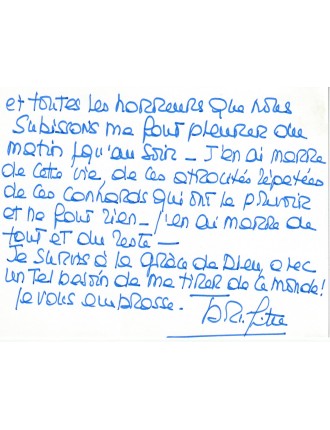 et toutes les horreurs que nous
subissons me font pleurer du
matin jqu'au soir – J'en ai marre
de cette vie, de ces atrocités répétées
de ces connards qui ont le pouvoir
et ne font rien – j'en ai marre de
tout et du reste –
Je survis à la grâce de Dieu, avec
un tel besoin de me tirer de ce monde!
Je vous embrasse.